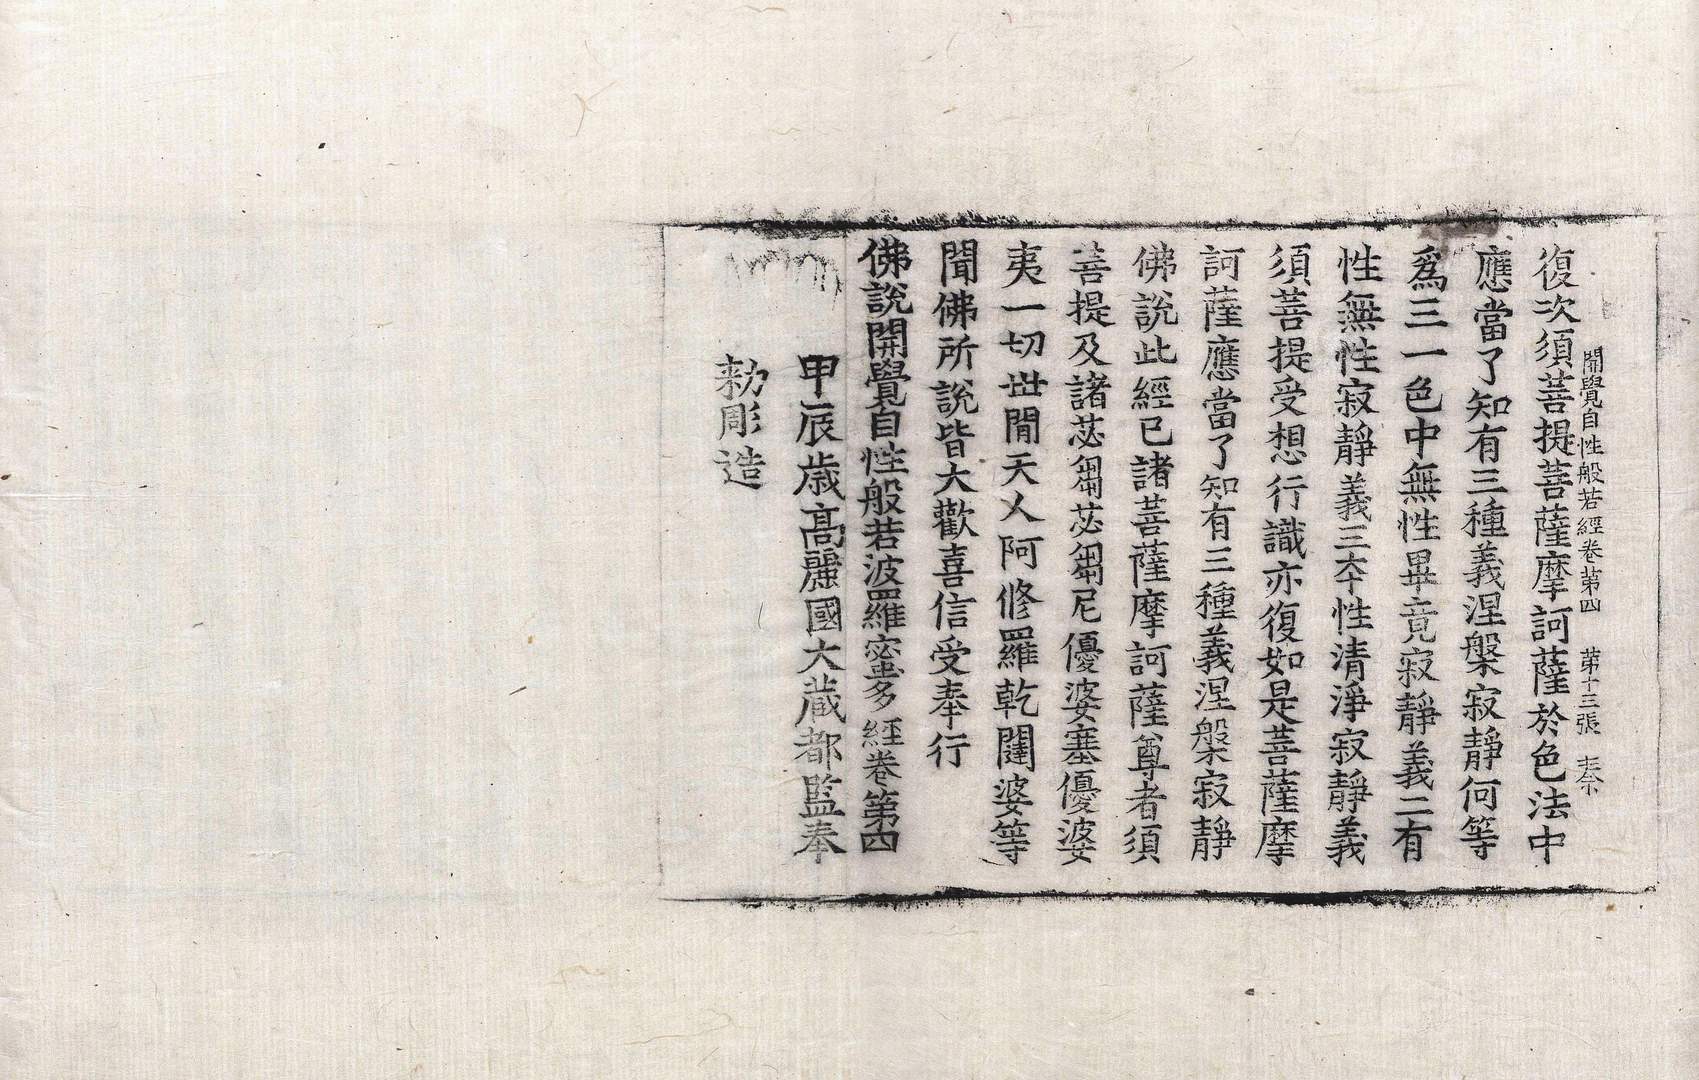 開覺自性般若經卷第四 第十三張 柰
復次須菩提菩薩摩訶薩於色法中
應當了知有三種義涅槃寂靜何等
爲三一色中無性畢竟寂靜義二有
性無性寂靜義三本性清淨寂靜義
須菩提受想行識亦復如是菩薩摩
訶薩應當了知有三種義涅槃寂靜
佛說此經已諸菩薩摩訶薩尊者須
菩提及諸苾芻苾芻尼優婆塞優婆
夷一切世間天人阿修羅乾闥婆等
聞佛所說皆大歡喜信受奉行
佛說開覺自性般若波羅蜜多經卷第四
甲辰歲高麗國大藏都監奉
勑彫造